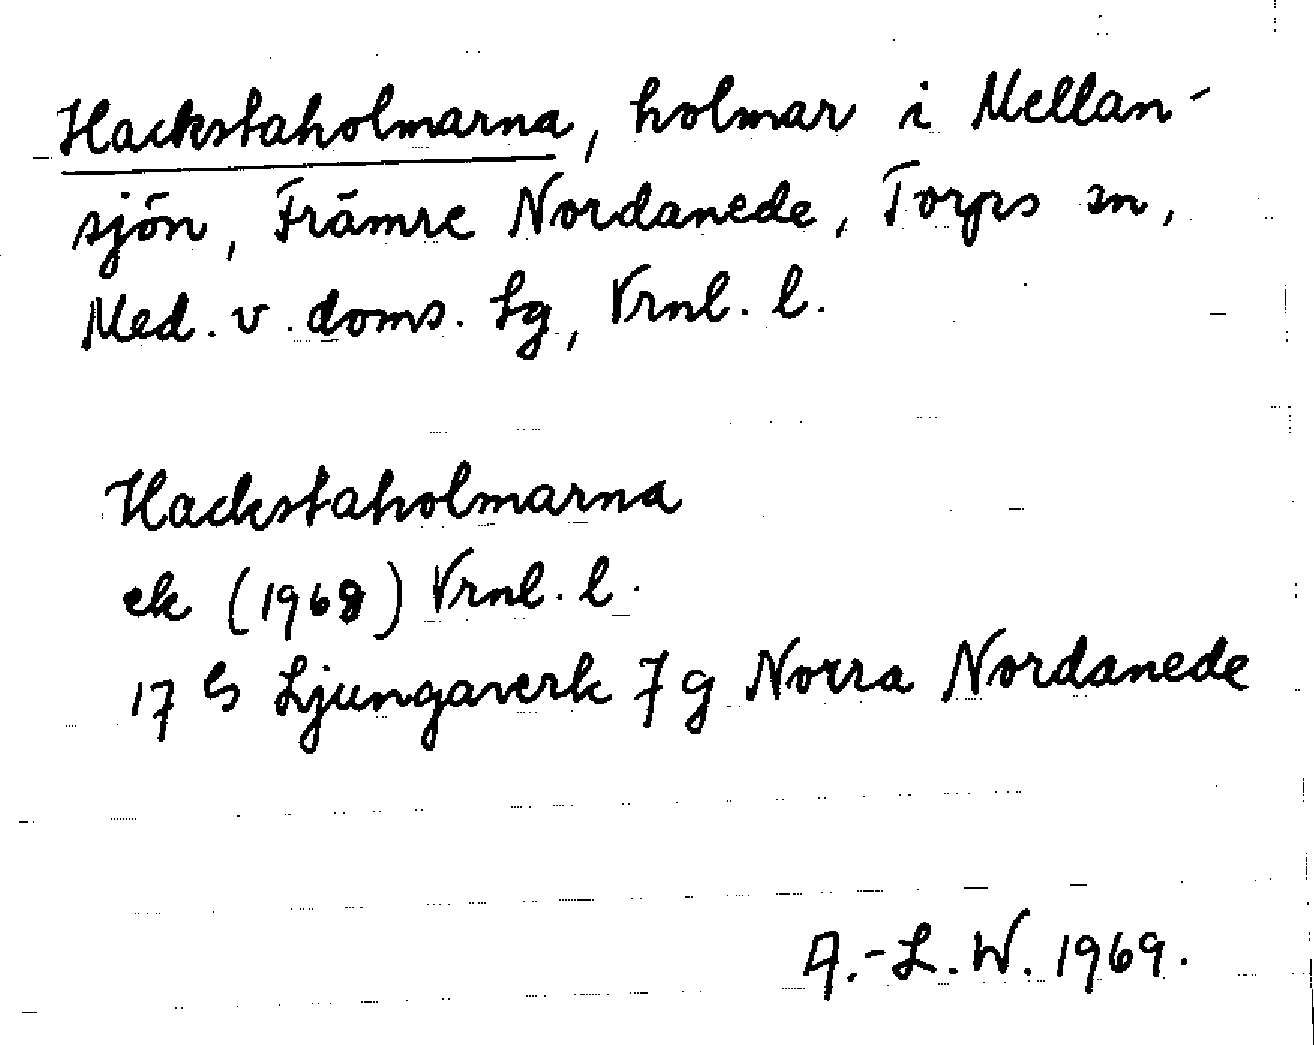 Hackstaholmarna, holmar i Mellan-
sjön, Främre Nordanede, Torps sn,
Med. v. doms. Lg, Vrnl. l.
Hackstaholmarna
ek (1968) Vrnl. l.
17 G Ljungaverk 7 g Norra Nordanede
A.-L. W. 1969.